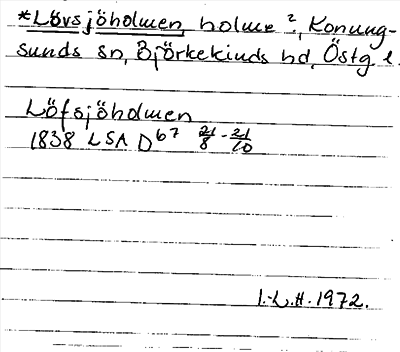 *Lövsjöholmen, holme ?, Konung-
sunds sn, Björkekinds hd, Östg. l.
Löfsjöholmen
1838 LSA D67 21/8 - 21/10
I.L.H. 1972.